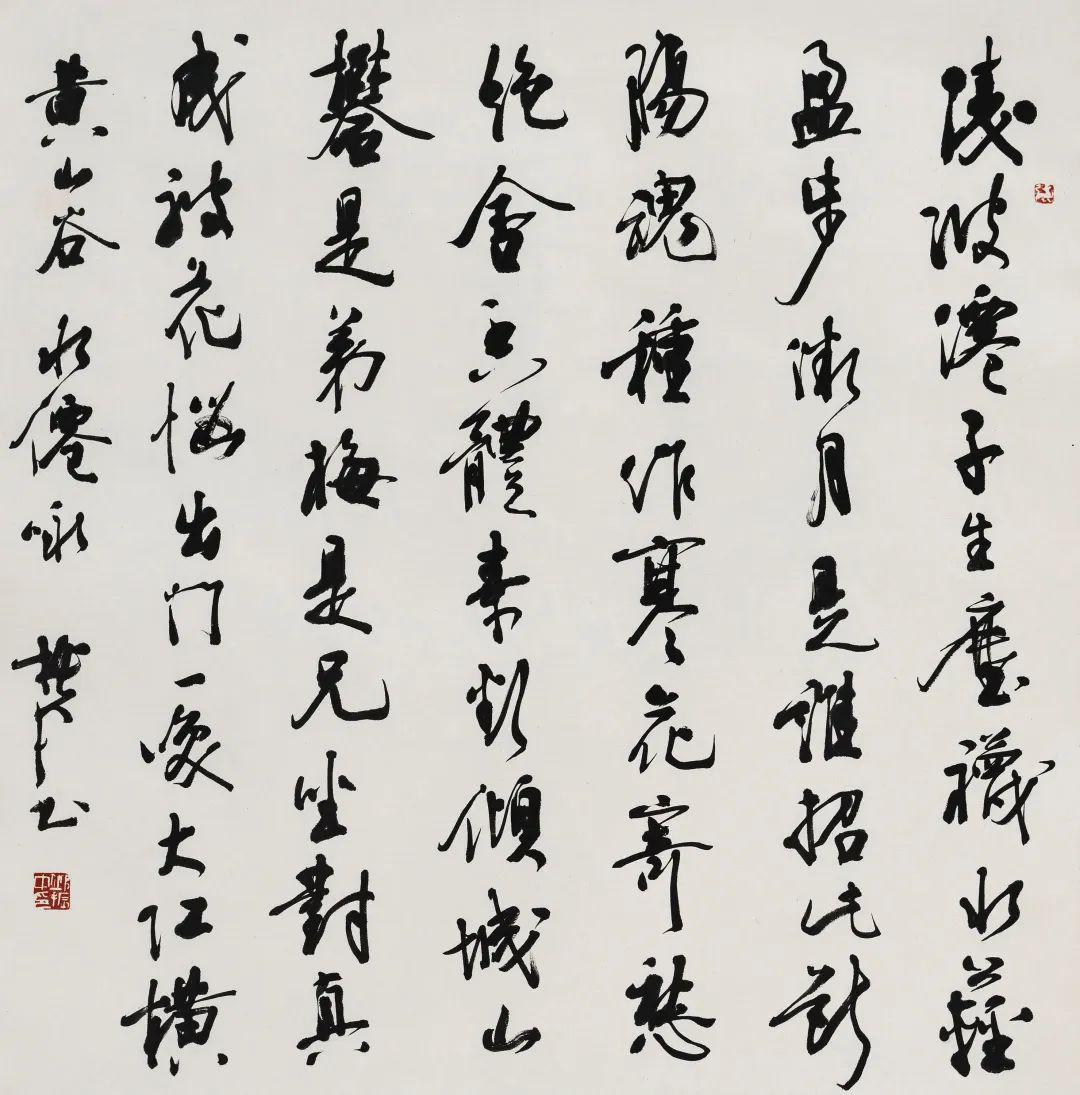 淩波僊子生塵襪水上輕
盈步微月是誰招此斷
腸魂種作寒花寄愁
絕含香體素欲傾城山
礬是弟梅是兄坐對真
成被花惱出門一咲大江橫
黃山谷水僊詠 振中書
邱振中印